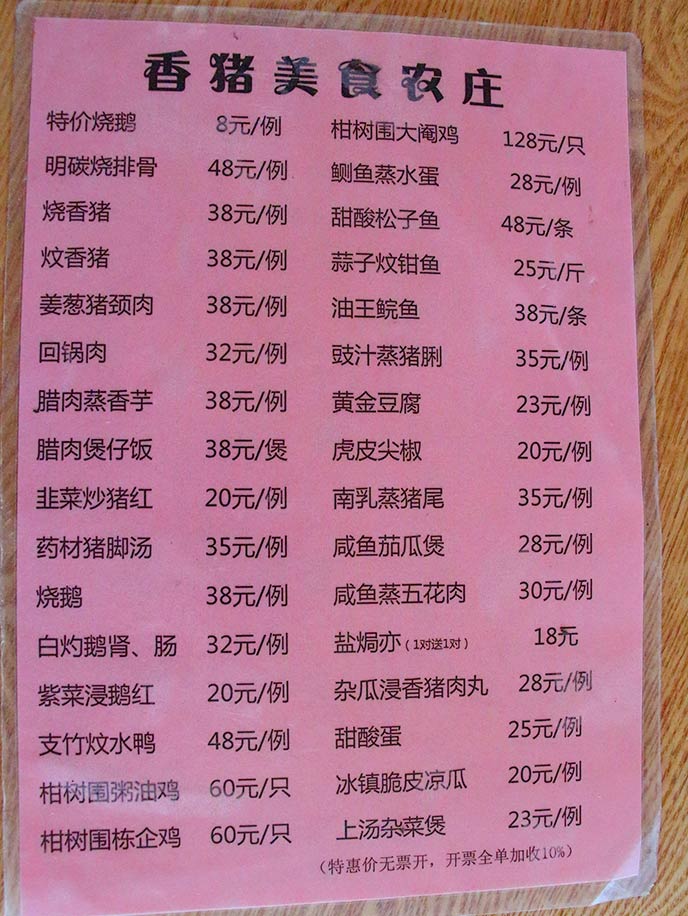 香猪美食农庄
特价烧鹅 8元/例
明碳烧排骨 48元/例
烧香猪 38元/例
炆香猪 38元/例
姜葱猪颈肉 38元/例
回锅肉 32元/例
腊肉蒸香芋 38元/例
腊肉煲仔饭 38元/煲
韭菜炒猪红 20元/例
药材猪脚汤 35元/例
烧鹅 38元/例
白灼鹅肾、肠 32元/例
紫菜浸鹅红 20元/例
支竹炆水鸭 48元/例
柑树围粥油鸡 60元/只
柑树围栋企鸡 60元/只
柑树围大阉鸡 128元/只
鲗鱼蒸水蛋 28元/例
甜酸松子鱼 48元/条
蒜子炆钳鱼 25元/斤
油王鲩鱼 38元/条
豉汁蒸猪脷 35元/例
黄金豆腐 23元/例
虎皮尖椒 20元/例
南乳蒸猪尾 35元/例
咸鱼茄瓜煲 28元/例
咸鱼蒸五花肉 30元/例
盐焗亦（1对送1对） 18元
杂瓜浸香猪肉丸 28元/例
甜酸蛋 25元/例
冰镇脆皮凉瓜 20元/例
上汤杂菜煲 23元/例
（特惠价无票开，开票全单加收10%）